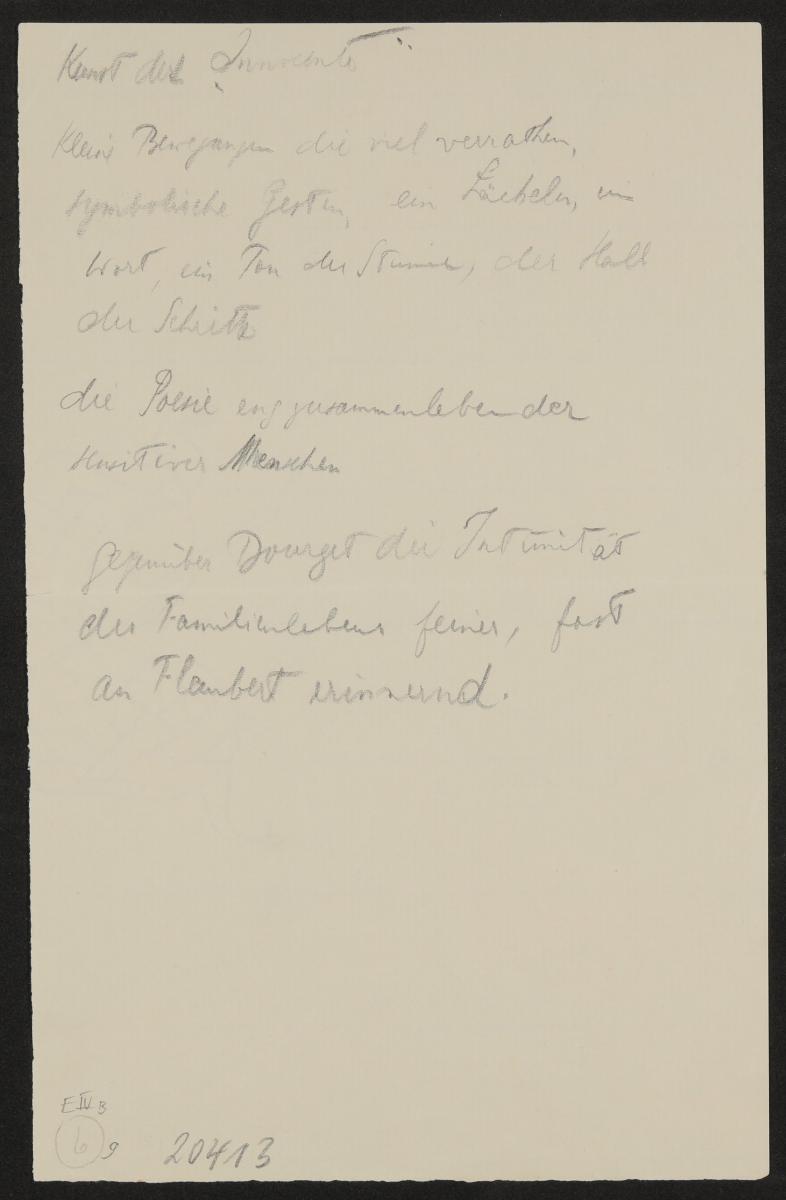 Kunst des „Innocente“
Kleine Bewegungen die viel verrathen,
symbolische Gesten, ein Lächeln, ein
Wort, ein Ton der Stimme, der Hall
der Schritte
die Poesie eng zusammenlebender
sensitiver Menschen
gegenüber Bourget die Intimität
des Familienlebens feiner, fast
an Flaubert erinnernd.
E IV B
6 9 20413